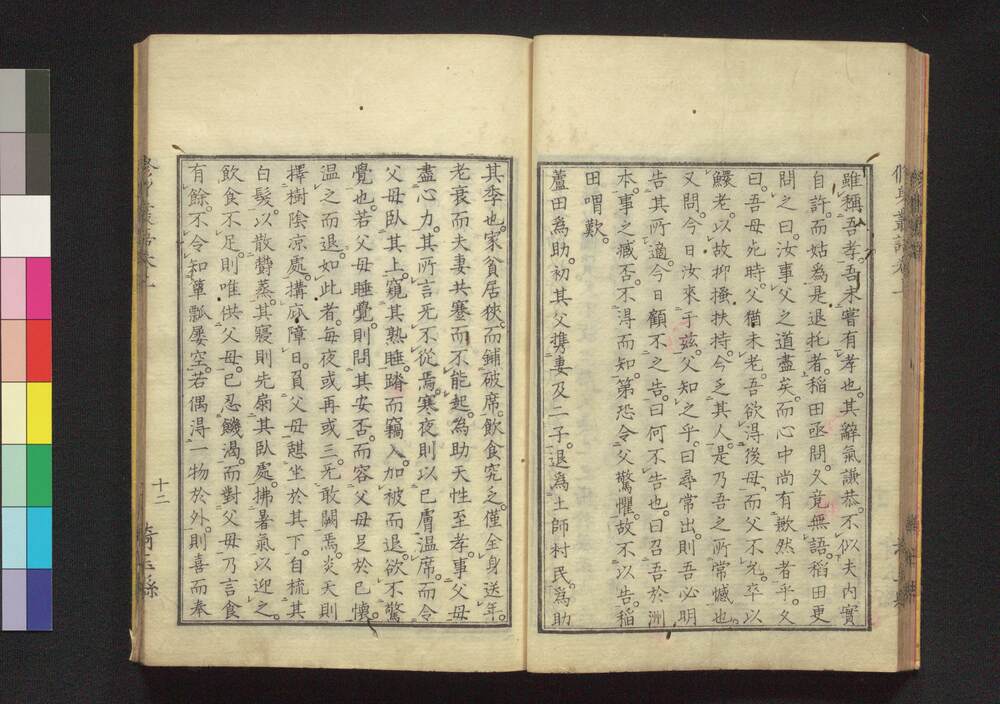 雖稱吾孝。吾未嘗有孝也。其辭氣謙恭。不似夫內實
自許。而姑為是退托者。稻田亟問。久竟無語。稻田更
問之曰。汝事父之道盡矣。而心中尚有歉然者乎。久
曰。吾母死時。父猶未老。吾欲得後母。而父不允。卒以
鰥老。以故抑搔扶持。今乏其人。是乃吾之所常憾也。
又問。今日汝來于茲。父知之乎。曰尋常出。則吾必明
告其所適。今日顧不之告。曰何不告也。曰召吾於洲
本。事之臧否。不得而知。第恐令父驚懼。故不以告。稻
田喟歎。
蘆田為助。初其父携妻及二子。退為土師村民。為助
其季也。家貧居狹。而鋪破席。飲食究之。僅全身送年。
老衰而夫妻共蹇而不能起。為助天性至孝。事父母
盡心力。其所言无不從焉。寒夜則以己膚温席。而令
父母臥其上。窺其熟睡。踏而竊入。加被而退。欲不驚
覺也。若父母睡覺。則問其安否。而容父母足於己懷。
温之而退。如此者。每夜或再或三。无敢闕焉。炎天則
擇樹陰凉處。搆庥障日。負父母憇坐於其下。自梳其
白髮。以散欝蒸。其寢則先扇其臥處。拂暑氣以迎之。
飲食不足。則唯供父母。己忍饑渴。而對父母乃言食
有餘。不令知。簞瓢屡空。若偶得一物於外。則喜而奉
十二